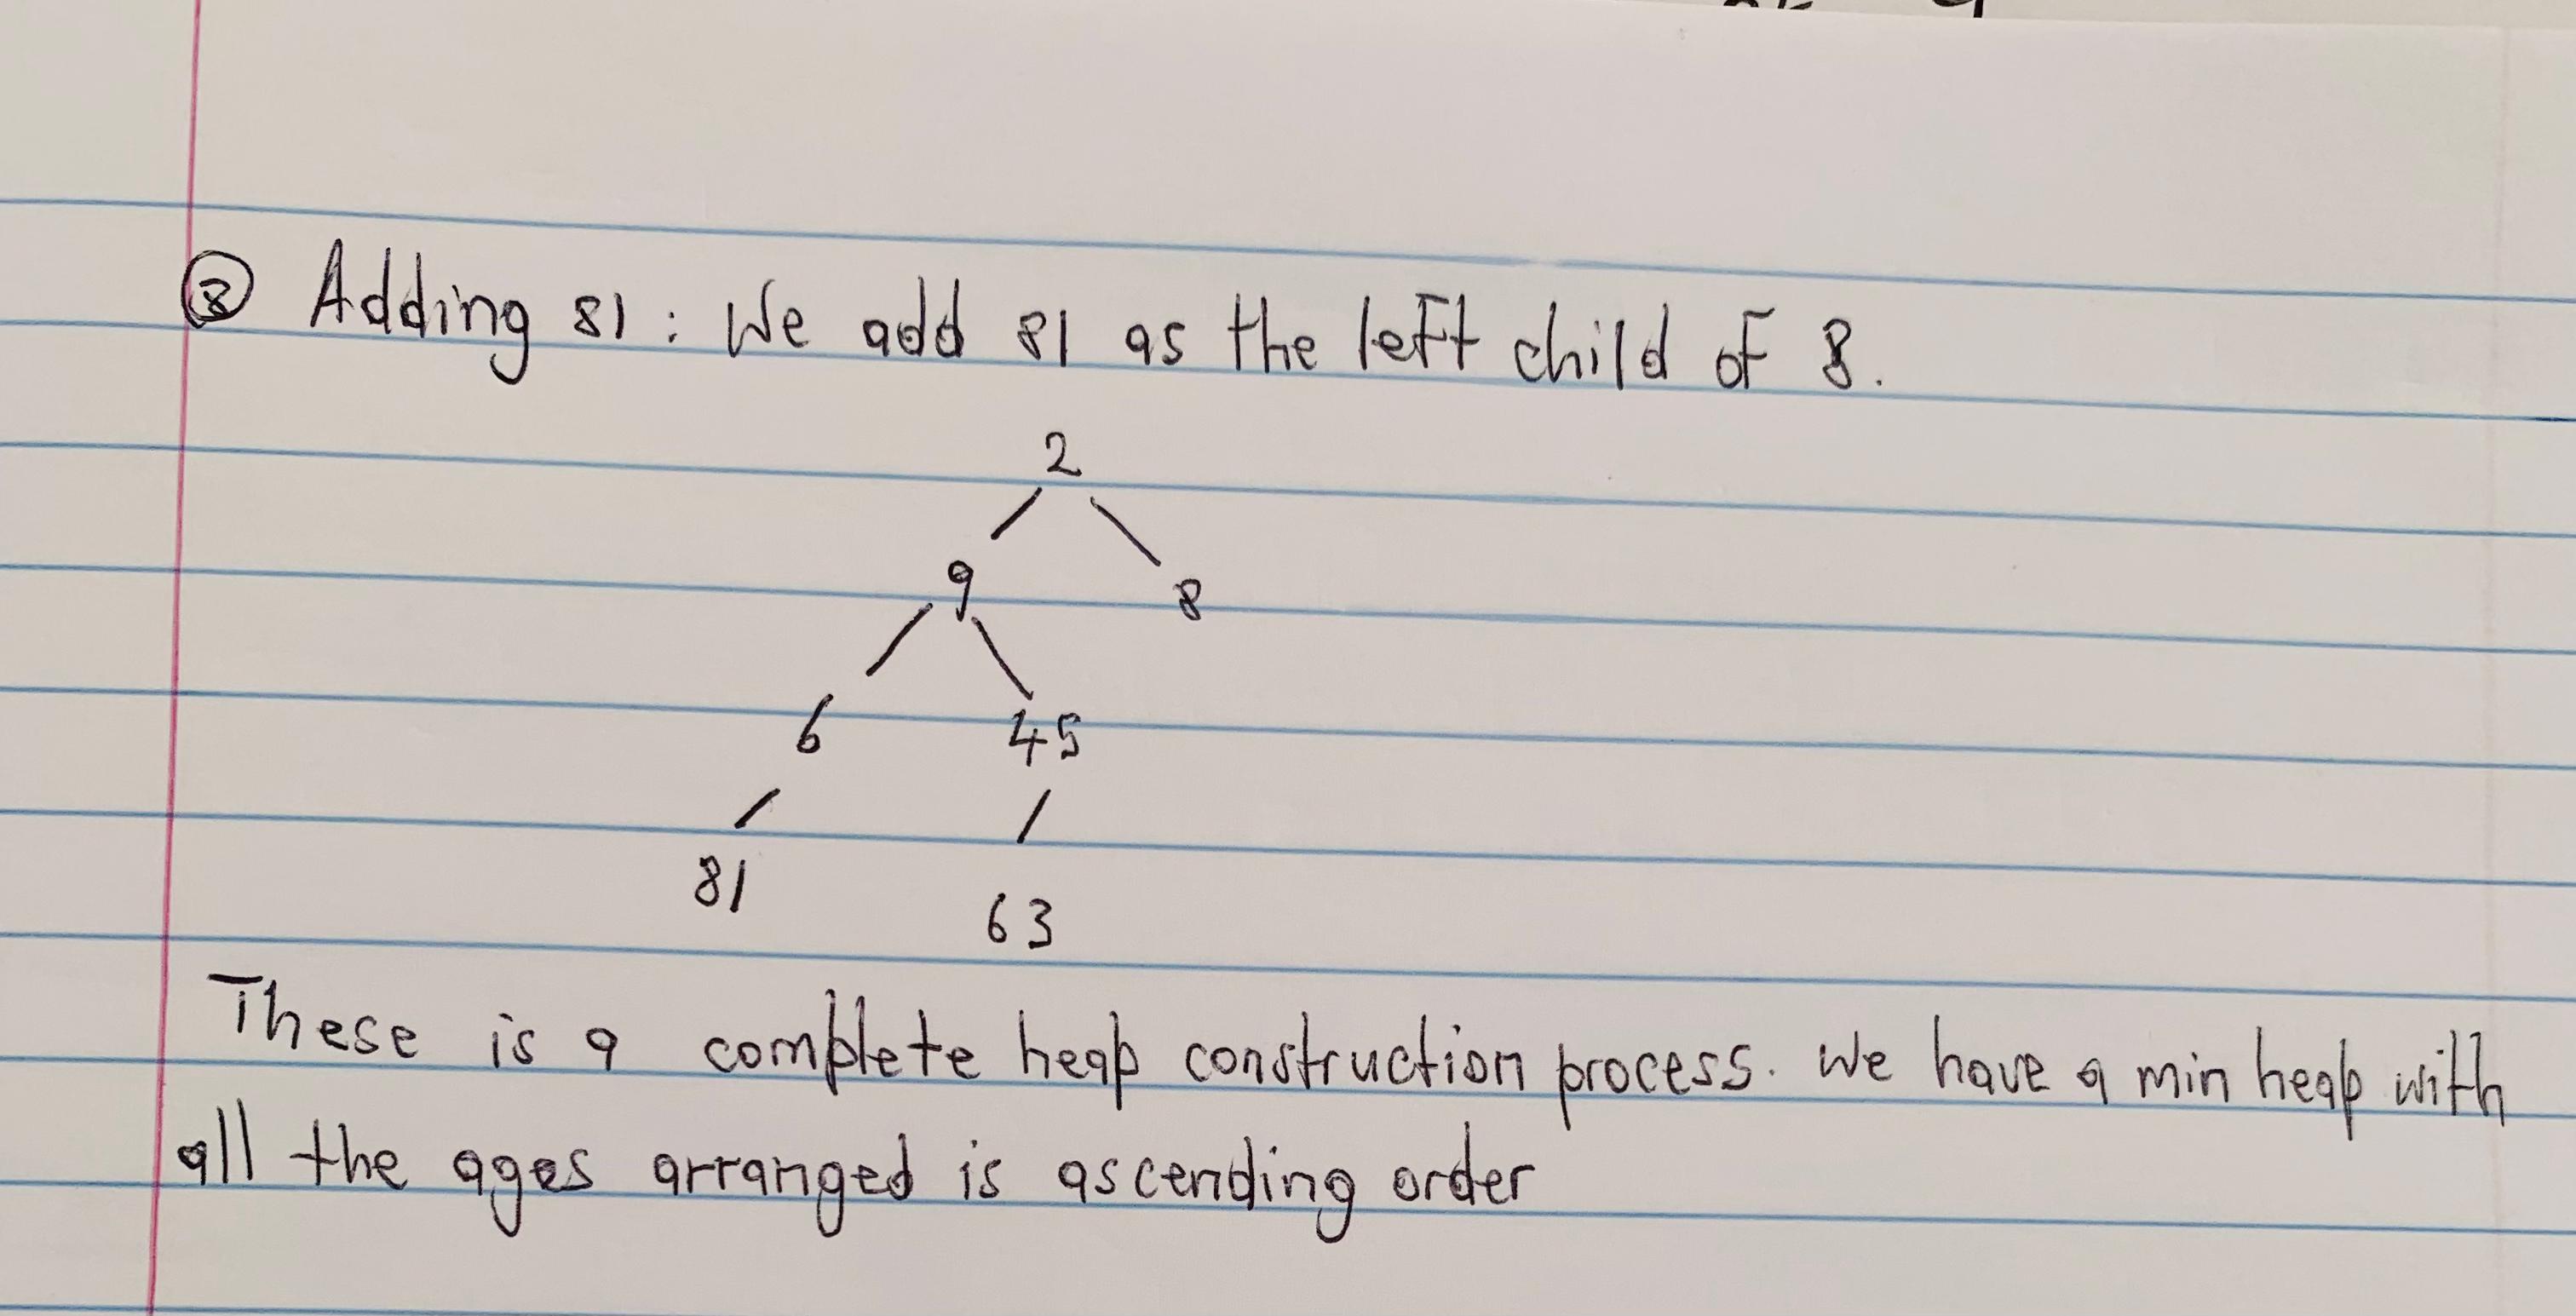 ⑧ Adding 81 : We add 81 as the left child of 8.
2
9 8
6 45
81 63
These is a complete heap construction process. We have a min heap with
all the ages arranged is ascending order